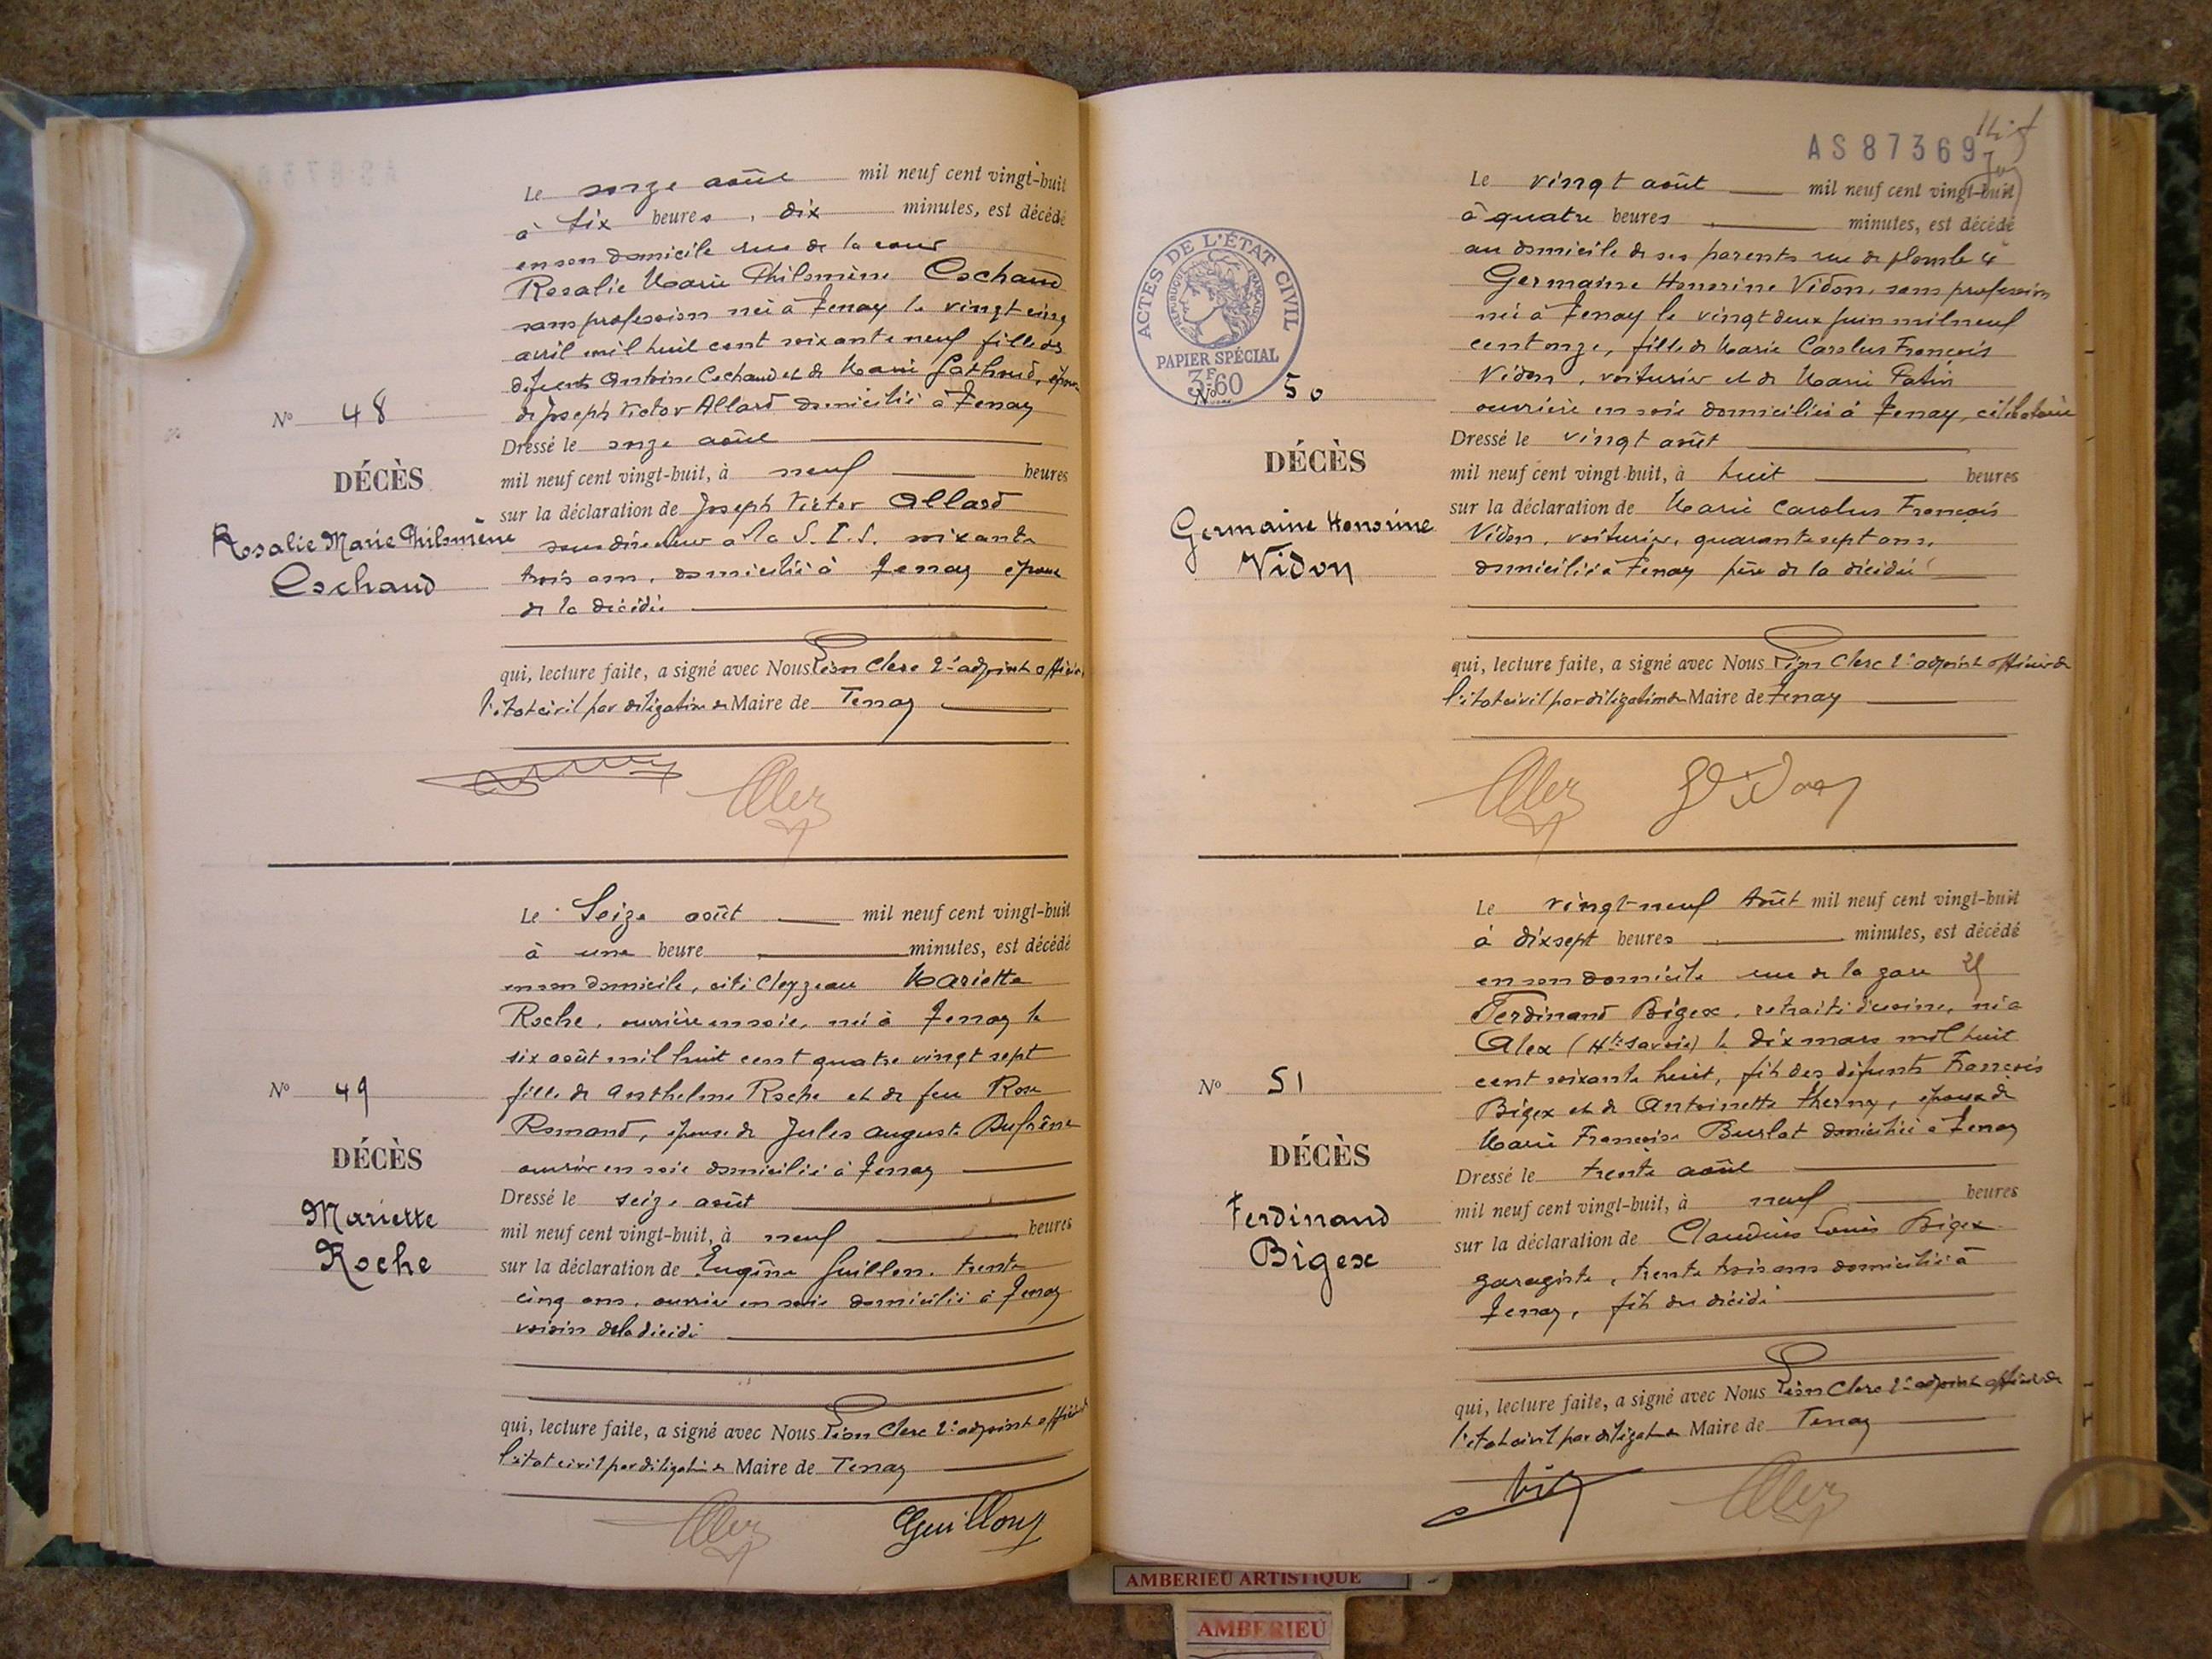 Le onze août mil neuf cent vingt-huit
à six heures, dix minutes, est décédé
en son domicile rue de la cour
Rosalie Marie Philomène Cochaud
sans profession née à Tenay le vingt cinq
avril mil huit cent soixante neuf fille des
défunts Antoine Cochaud et de Marie épouse
de Joseph Victor Allard domicilié à Tenay
Nº 48
DÉCÈS
Rosalie Marie Philomène
Cochaud
Dressé le onze août
mil neuf cent vingt-huit, à neuf heures
sur la déclaration de Joseph Victor Allard
sous directeur à la S. I. S. soixante
trois ans, domicilié à Tenay époux
de la décédée
qui, lecture faite, a signé avec Nous Léon Clerc 2e adjoint officier
l'état civil par délégation du Maire de Tenay
Le Seize août mil neuf cent vingt-huit
à une heure minutes, est décédé
en son domicile, cité Cleyzeau Mariette
Roche, ouvrière en soie, née à Tenay le
six août mil huit cent quatre vingt sept
fille de Anthelme Roche et de feu Rose
Romand, épouse de Jules Auguste Dufrêne
ouvrier en soie domicilié à Tenay
Nº 49
DÉCÈS
Mariette
Roche
Dressé le seize août
mil neuf cent vingt-huit, à neuf heures
sur la déclaration de Eugène Guillon, trente
cinq ans, ouvrier en soie domicilié à Tenay
voisin de la décédé
qui, lecture faite, a signé avec Nous Léon Clerc 2e adjoint officier
l'état civil par délégation du Maire de Tenay
Guillon
AS 87369
Le vingt août mil neuf cent vingt-huit
à quatre heures minutes, est décédé
au domicile de ses parents rue de plomb 4
Germaine Honorine Vidon, sans profession
née à Tenay le vingt deux juin mil neuf
cent onze, fille de Marie Carolus François
Vidon, voiturier et de Marie Patin
ouvrière en soie domiciliés à Tenay, célibataire
ACTES DE L'ÉTAT CIVIL
RÉPUBLIQUE FRANÇAISE
PAPIER SPÉCIAL
3F60
Nº 50
DÉCÈS
Germaine Honorine
Vidon
Dressé le vingt août
mil neuf cent vingt-huit, à huit heures
sur la déclaration de Marie Carolus François
Vidon, voiturier, quarante sept ans,
domicilié à Tenay père de la décédée
qui, lecture faite, a signé avec Nous Léon Clerc 2e adjoint officier de
l'état civil par délégation du Maire de Tenay
Vidon
Le vingt-neuf Août mil neuf cent vingt-huit
à dix sept heures minutes, est décédé
en son domicile rue de la gare
Ferdinand Bigex, retraité d'usine, né à
Alex (Hte Savoie) le dix mars mil huit
cent soixante huit, fils des défunts François
Bigex et de Antoinette Therny, époux de
Marie Françoise Burlat domicilié à Tenay
Nº 51
DÉCÈS
Ferdinand
Bigex
Dressé le trente août
mil neuf cent vingt-huit, à neuf heures
sur la déclaration de Claudius Louis Bigex
garagiste, trente trois ans domicilié à
Tenay, fils du décédé
qui, lecture faite, a signé avec Nous Léon Clerc 2e adjoint officier de
l'état civil par délégation du Maire de Tenay
AMBERIEU ARTISTIQUE
AMBERIEU